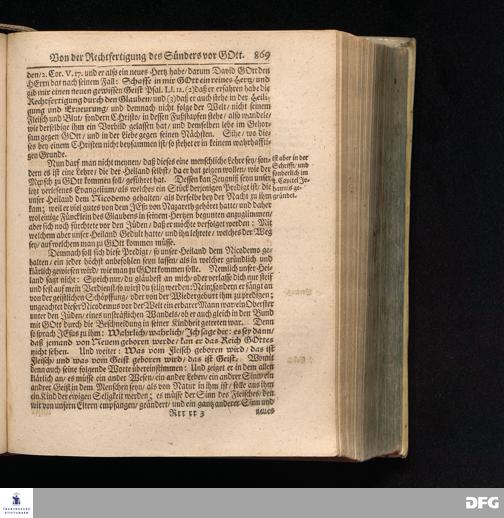 Von der Rechtfertigung des Sünders vor GOtt. 869
den/2. Cor. V. 17. und er also ein neues Hertz habe/darum David GOtt den
HErrn bat nach seinem Fall: Schaffe in mir GOtt ein reines Hertz/ und
gib mir einen neuen gewissen Geist Psal. LI. 12. (2) daß er erfahren habe die
Rechtfertigung durch den Glauben/ und (3) daß er auch stehe in der Heili-
gung und Erneurung/ und demnach nicht folge der Welt/ nicht seinem
Fleisch und Blut/ sondern Christo/ in dessen Fußstapfen stehe/ also wandele/
wie derselbige ihm ein Vorbild gelassen hat/ und demselben lebe im Gehor-
sam gegen GOtt/ und in der Liebe gegen seinen Nächsten. Sihe/ wo die-
ses bey einem Christen nicht beysammen ist/ so stehet er in keinem wahrhaffti-
gen Grunde.
Nun darf man nicht meynen/ daß dieses eine menschliche Lehre sey/ son-
dern es ist eine Lehre/ die der Heiland selbst/ da er hat zeigen wollen/ wie der
Mensch zu GOtt kommen soll/ geführet hat. Dessen kan Zeugniß seyn unser
letzt verlesenes Evangelium/ als welches ein Stück derjenigen Predigt ist/ die
unser Heiland dem Nicodemo gehalten/ als derselbe bey der Nacht zu ihm
kam; weil er viel gutes von dem JEsu von Nazareth gehöret hatte/ und daher
wol einige Füncklein des Glaubens in seinem Hertzen begunten anzuglimmen/
aber sich noch fürchtete vor den Jüden/ daß er möchte verfolget werden: Mit
welchem aber unser Heiland Gedult hatte/ und ihn lehrete/ welches der Weg
sey/ auf welchem man zu GOtt kommen müsse.
ist aber in der
Schrifft/ und
sonderlich im
Capitel Jo-
hannis ge-
gründet.
Demnach soll sich diese Predigt/ so unser Heiland dem Nicodemo ge-
halten/ ein jeder höchst anbefohlen seyn lassen/ als in welcher gründlich und
klärlich gewiesen wird/ wie man zu GOtt kommen solle. Nemlich unser Hei-
land sagt nicht: Sprich nur/ du gläubest an mich/ oder verlasse dich nur steif
und fest auf mein Verdienst/ so wirst du selig werden: Nein; sondern er fängt an
von der geistlichen Schöpffung/ oder von der Wiedergeburt ihm zu predigen;
ungeachtet dieser Nicodemus vor der Welt ein erbarer Mann war/ ein Oberster
unter den Jüden/ eines unsträflichen Wandels/ ob er auch gleich in den Bund
mit GOtt durch die Beschneidung in seiner Kindheit getreten war. Denn
so sprach JEsus zu ihm: Wahrlich/ wahrlich/ Ich sage dir: es sey dann/
daß jemand von Neuem geboren werde/ kan er das Reich GOttes
nicht sehen. Und weiter: Was vom Fleisch geboren wird/ das ist
Fleisch/ und was vom Geist geboren wird/ das ist Geist. Womit
denn auch seine folgende Worte übereinstimmen: Und zeiget er in dem allen
klärlich an/ es müsse ein ander Wesen/ ein ander Leben/ ein andrer Sinn/ ein
andrer Geist in dem Menschen seyn/ als von Natur in ihm ist/ solle aus ihm
ein Kind der ewigen Seligkeit werden; es müsse der Sinn des Fleisches/ den
wir von unsern Eltern empfangen/ geändert/ und ein gantz anderer Sinn und
Rrr rr 3 neues
DFG